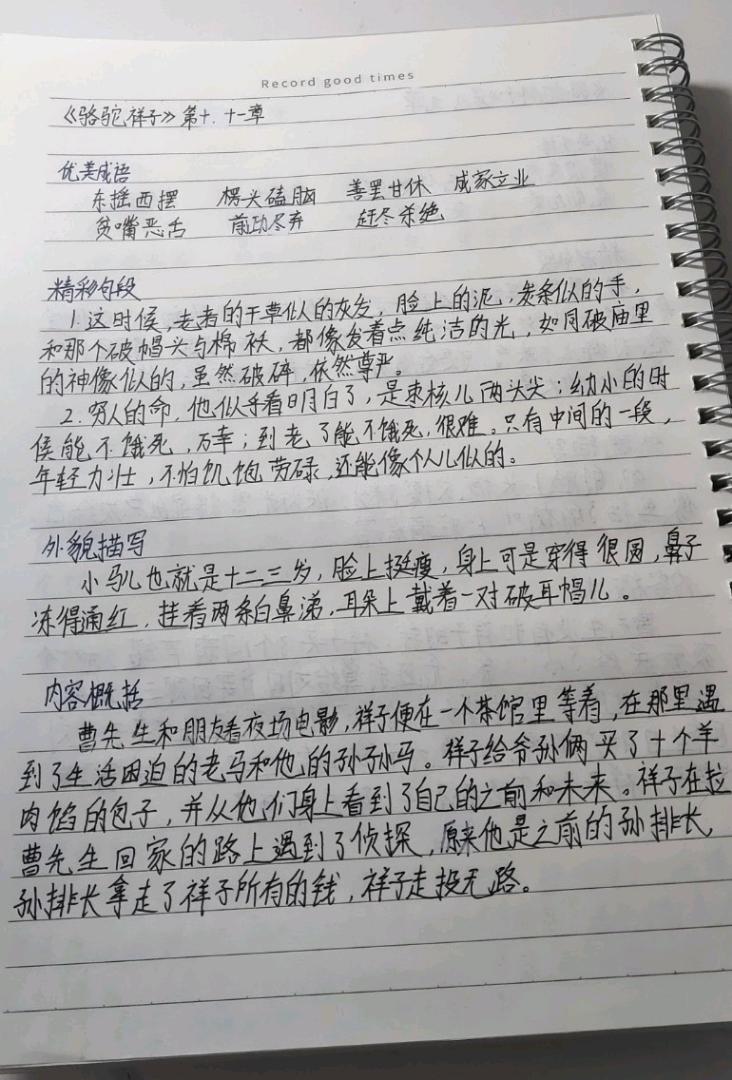 Record good times
《骆驼祥子》第十.十一章
优美成语
东摇西摆 楞头磕脑 善罢甘休 成家立业
贫嘴恶舌 前功尽弃 赶尽杀绝
精彩句段
1.这时候,老者的干草似的灰发,脸上的泥,炭条似的手,
和那个破帽头与棉袄,都像发着点纯洁的光,如同破庙里
的神像似的,虽然破碎,依然尊严。
2.穷人的命,他似乎看明白了,是枣核儿两头尖;幼小的时
候能不饿死,万幸;到老了能不饿死,很难。只有中间的一段,
年轻力壮,不怕饥饱劳碌,还能像个人儿似的。
外貌描写
小马儿也就是十二三岁,脸上挺瘦,身上可是穿得很圆,鼻子
冻得通红,挂着两条白鼻涕,耳朵上戴着一对破耳帽儿。
内容概括
曹先生和朋友看夜场电影,祥子便在一个茶馆里等着,在那里遇
到了生活困迫的老马和他的孙子小马。祥子给爷孙俩买了十个羊
肉馅的包子,并从他们身上看到了自己的之前和未来。祥子在拉
曹先生回家的路上遇到了侦探,原来他是之前的孙排长,
孙排长拿走了祥子所有的钱,祥子走投无路。